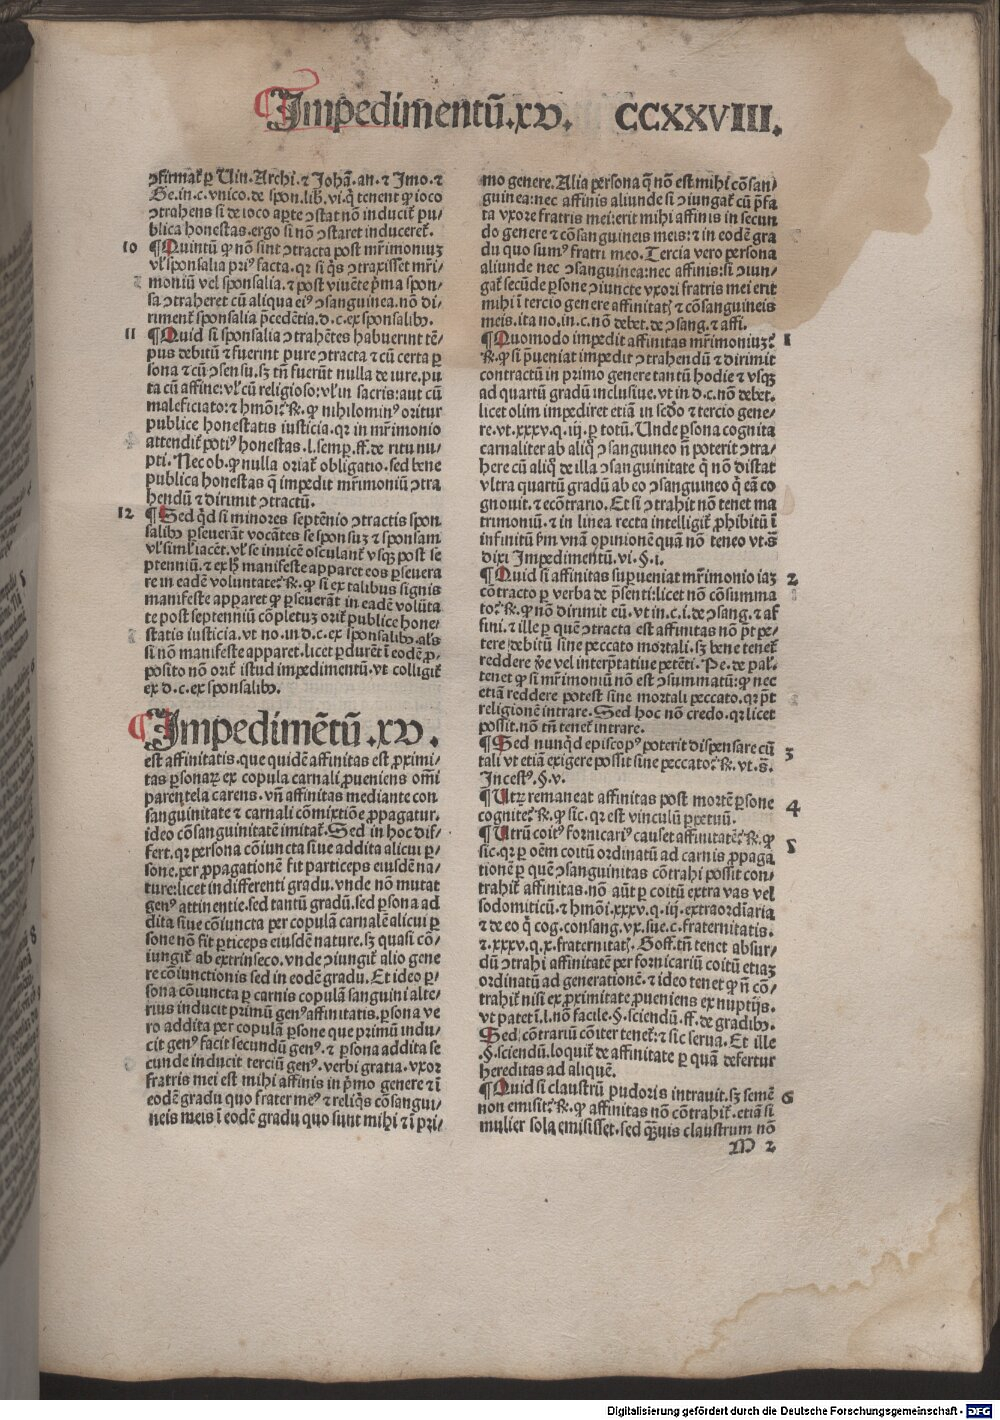 Impedimentū.xv. CCXXVIII.
ↄfirmat̃ ꝑ Uin.Archi.⁊ Johā.an.⁊ Imo.⁊
Ge.in.c.vnico.de spon.lib.vi.q̇ tenent ꝙ ioco
ↄtrahens si de ioco aꝑte ↄstat nō inducit̃ pu/
blica honestas.ergo si nō ↄstaret induceret̃.
10 ¶Quintū ꝙ nō sint ↄtracta post mr̃imoniuꝫ
vl̃ sponsalia priꝰ facta.qꝛ si q̇s ↄtraxisset mr̃i/
moniū vel sponsalia.⁊ post viuēte p̃ma spon/
sa ↄtraheret cū aliqua eiꝰ ↄsanguinea.nō di/
riment̃ sponsalia p̃cedētia.d.c.ex sponsalibꝰ.
11 ¶Quid si sponsalia ↄtrahētes habuerint tē/
pus debitū ⁊ fuerint pure ↄtracta ⁊ cū certa ꝑ
sona ⁊ cū ↄsensu.sꝫ tn̄ fuerūt nulla de iure.pu
ta cū affine:vl̃ cū religioso:vl̃ in sacris:aut cū
maleficiato:⁊ hmōi:℟.ꝙ nihilominꝰ oritur
publice honestatis iusticia.qꝛ in mr̃imonio
attendit̃ potiꝰ honestas.l.semꝑ.ff.de ritu nu/
pti.Nec ob.ꝙ nulla oriat̃ obligatio.sed bene
publica honestas q̄ impedit mr̃imoniū ↄtra
hendū ⁊ dirimit ↄtractū.
12 ¶Sed q̇d si minores septēnio ↄtractis spon
salibꝰ ꝑseuerāt vocātes se sponsuꝫ ⁊ sponsam
vl̃ simĺ iacēt.vl̃ se inuicē osculant̃ vsqꝫ post se
ptenniū.⁊ ex hꝫ manifeste apparet eos ꝑseuera
re in eadē voluntate:℟.ꝙ si ex talibus signis
manifeste apparet ꝙ ꝑseuerāt in eadē volūta
te post septenniū cōpletuꝫ orit̃ publice hone/
statis iusticia.vt no.in d.c.ex sponsalibꝰ.al̃s
si nō manifeste apparet.licet ꝑdurēt ī eodē ꝓ/
posito nō orit̃ istud impedimentū.vt colligit̃
ex d.c.ex sponsalibꝰ.
¶Impedimētū.xv.
est affinitatis.que quidē affinitas est ꝓximi/
tas ꝑsonaꝝ ex copula carnali ꝓueniens om̄i
parentela carens.vn̄ affinitas mediante con
sanguinitate ⁊ carnali cōmixtiōe ꝓpagatur.
ideo cōsanguinitatē imitat̃.Sed in hoc dif/
fert.qꝛ persona cōiuncta siue addita alicui ꝑ/
sone.per ꝓpagationē fit particeps eiusdē na/
ture:licet in differenti gradu.vnde nō mutat
genꝰ attinentie.sed tantū gradū.sed ꝑsona ad
dita siue cōiuncta per copulā carnalē alicui ꝑ
sone nō fit ꝑticeps eiusdē nature.sꝫ quasi cō/
iungit̃ ab extrinseco.vnde ↄiungit̃ alio gene
re cōiunctionis sed in eodē gradu.Et ideo ꝑ/
sona cōiuncta ꝑ carnis copulā sanguini alte/
rius inducit primū genꝰ affinitatis.ꝑsona ve
ro addita per copulā ꝑsone que primū indu/
cit genꝰ facit secundū genꝰ.⁊ ꝑsona addita se
cunde inducit terciū genꝰ.verbi gratia.vxor
fratris mei est mihi affinis in p̃mo genere ⁊ ī
eodē gradu quo frater meꝰ ⁊ reliq̇s cōsangui/
neis meis ī eodē gradu quo sunt mihi ⁊ ī pri/
mo genere.Alia persona q̄ nō est mihi cōsan/
guinea:nec affinis aliunde si ↄiungat̃ cū p̃fa
ta vxore fratris mei:erit mihi affinis in secun
do genere ⁊ cōsanguineis meis:⁊ in eodē gra
du quo sumꝰ fratri meo.Tercia vero persona
aliunde nec ↄsanguinea:nec affinis:si ↄiun/
gat̃ secūde ꝑsone ↄiuncte vxori fratris mei erit
mihi ī tercio genere affinitatꝭ ⁊ cōsanguineis
meis.ita no.in.c.nō debet.de ↄsang.⁊ affi.
¶Quomodo impedit affinitas mr̃imoniuꝫ: 1
℟.ꝙ si p̃ueniat impedit ↄtrahendū ⁊ dirimit
contractū in primo genere tantū hodie ⁊ vsqꝫ
ad quartū gradū inclusiue.vt in d.c.nō debet.
licet olim impediret etiā in sc̄do ⁊ tercio gene/
re.vt.xxxv.q.iij.ꝑ totū.Unde ꝑsona cognita
carnaliter ab aliq̊ ↄsanguineo n̄ poterit ↄtra/
here cū aliq̊ de illa ↄsanguinitate q̇ nō distat
vltra quartū gradū ab eo ↄsanguineo q̇ eā co
gnouit.⁊ ecōtrario.Et si ↄtrahit nō tenet ma
trimoniū.⁊ in linea recta intelligit̃ ꝓhibitū ī
infinitū ẜm vnā opinionē quā nō teneo vt.s̄
dixi Impedimentū.vi.§.i.
¶Quid si affinitas suꝑueniat mr̃imonio iaꝫ 2
cōtracto ꝑ verba de p̃senti:licet nō cōsumma
to:℟.ꝙ nō dirimit eū.vt in.c.i.de ↄsang.⁊ af
fini.⁊ ille ꝑ quē ↄtracta est affinitas nō p̄t pe/
tere debitū sine peccato mortali.sꝫ bene tenet̃
reddere v̄e vel interp̃tatiue petēti.Pe.de pal.
tenet ꝙ si mr̃imoniū nō est ↄsummatū:ꝙ nec
etiā reddere potest sine mortali peccato.qꝛ p̄t
religionē intrare.Sed hoc nō credo.qꝛ licet
possit.nō tn̄ tenet̃ intrare.
¶Sed nunq̇d episcopꝰ poterit dispensare cū 3
tali vt etiā exigere possit sine peccato:℟.vt.s̄.
Incestꝰ.§.v.
¶Utꝝ remaneat affinitas post mortē ꝑsone 4
cognite:℟.ꝙ sic.qꝛ est vinculū ꝑpetuū.
¶Utrū coitꝰ fornicariꝰ causet affinitatē:℟.ꝙ 5
sic.qꝛ ꝑ oēm coitū ordinatū ad carnis ꝓpaga
tionē ꝑ quē ↄsanguinitas cōtrahi possit con/
trahit̃ affinitas.nō aūt ꝑ coitū extra vas vel
sodomiticū.⁊ hmōi.xxxv.q.iij.extraordīaria
⁊ de eo q̇ cog.consang.vx.sue.c.fraternitatis.
⁊.xxxv.q.x.fraternitatꝭ.Goff.tn̄ tenet absur/
dū ↄtrahi affinitatē per fornicariū coitū etiaꝫ
ordinatū ad generationē.⁊ ideo tenet ꝙ n̄ cō/
trahit̃ nisi ex ꝓximitate ꝓueniens ex nuptijs.
vt patet ī.l.nō facile.§.sciendū.ff.de gradibꝰ.
Sed cōtrariū cōiter tenet̃:⁊ sic serua.Et ille
.§.sciendū.loquit̃ de affinitate ꝑ quā defertur
hereditas ad aliquē.
¶Quid si claustrū pudoris intrauit.sꝫ semē 6
non emisit:℟.ꝙ affinitas nō cōtrahit̃.etiā si
mulier sola emisisset.sed q̃uis claustrum nō
M 2
Digitalisierung gefördert durch die Deutsche Forschungsgemeinschaft - DFG